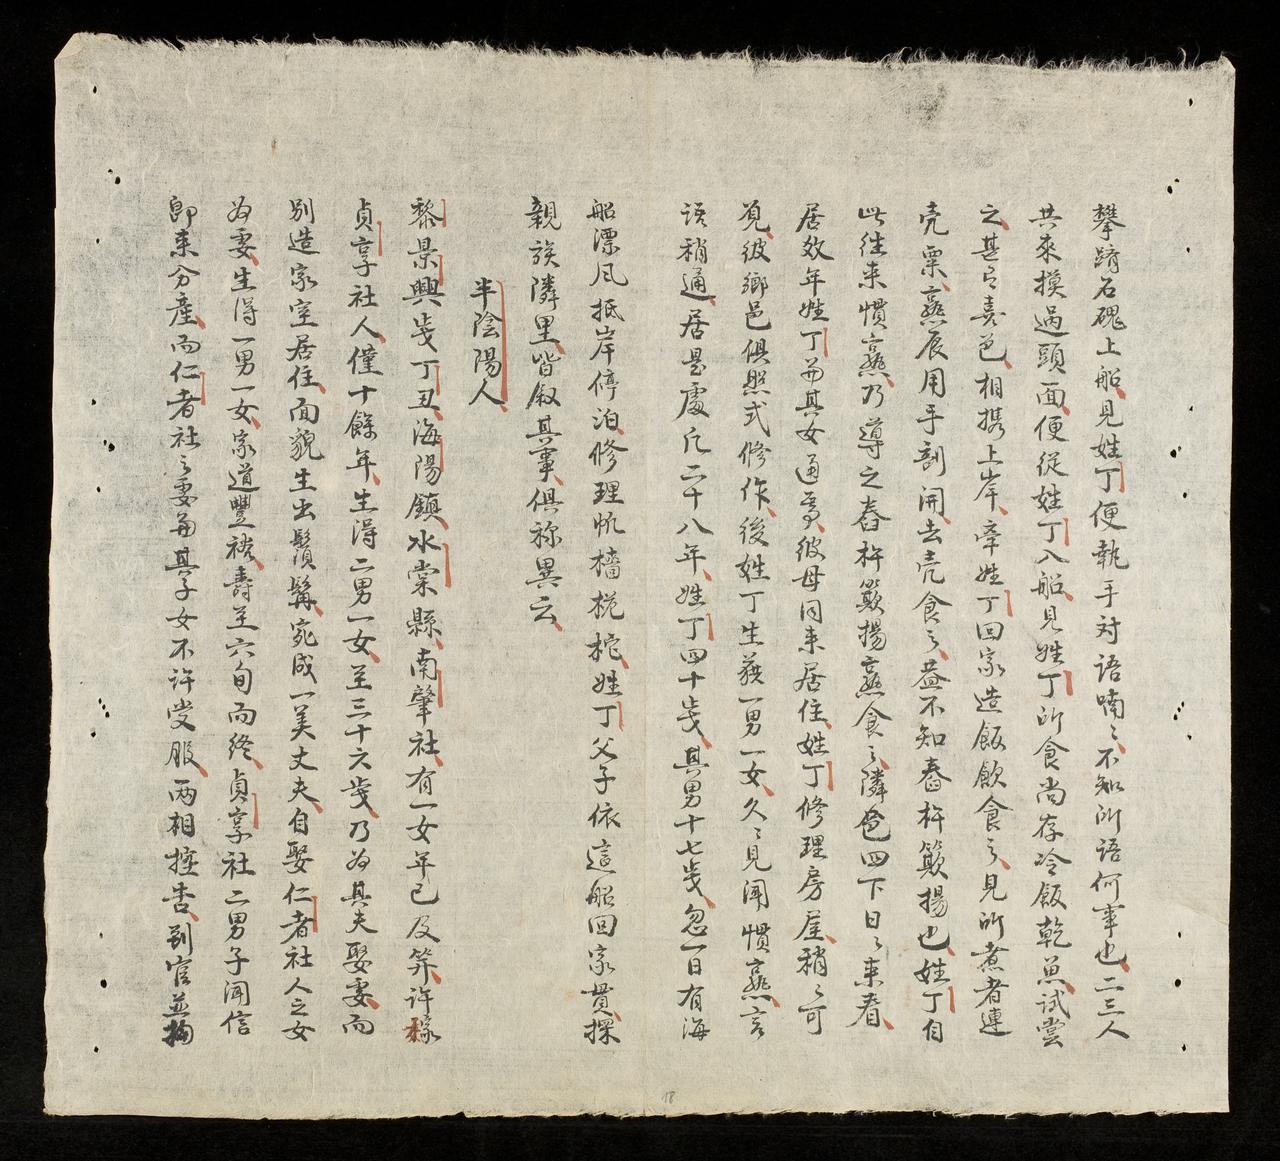 攀躋石磈上船見姓丁便執手对語喃〻不知所語何事也二三人
共來摸過頭面便従姓丁入船見姓丁所食尚存冷飯乾魚試嘗
之甚有喜色相携上岸牽姓丁回家造飯飲食之見所煮者連
壳粟熟辰用手剖開去壳食之盖不知舂杵簸揚也姓丁自
此往来慣熟乃導之舂杵簸揚熟食之隣邑四下日〻来看
居效年姓丁為其女通焉彼母同来居住姓丁修理房屋稍〻可
覓彼鄉邑俱照式修作後姓丁生莪一男一女久〻見聞慣熟言
语稍通居是處凢二十八年姓丁四十歩其男十七歩忽一日有海
船漂風抵岸停泊修理帆檣桅柁姓丁父子依這船回家貫探
親族隣里皆叙其事俱称異云
半陰陽人
黎景興歩丁丑海陽鎮水棠縣南肇社有一女年已及笄許嫁
貞享社人僅十餘年生得二男一女至三十六歩乃為其夫娶妾而
别造家室居住面貌生出鬚髯宛成一美丈夫自娶仁者社人之女
为妻生得一男一女家道豐裕壽至六旬而終貞享社二男子闻信
即来分產而仁者社之妻為其子女不許受服両相控告到官並拘
18